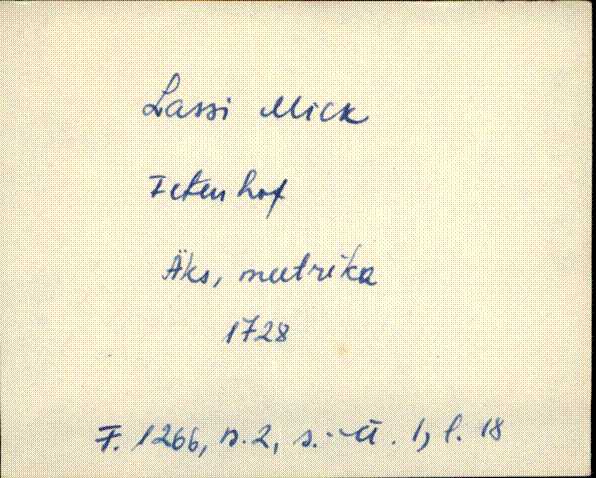 Lassi Mick
Fetenhof
Äks, meetrika
1728
F. 1266, n. 2, s.-ü. 1, l. 18